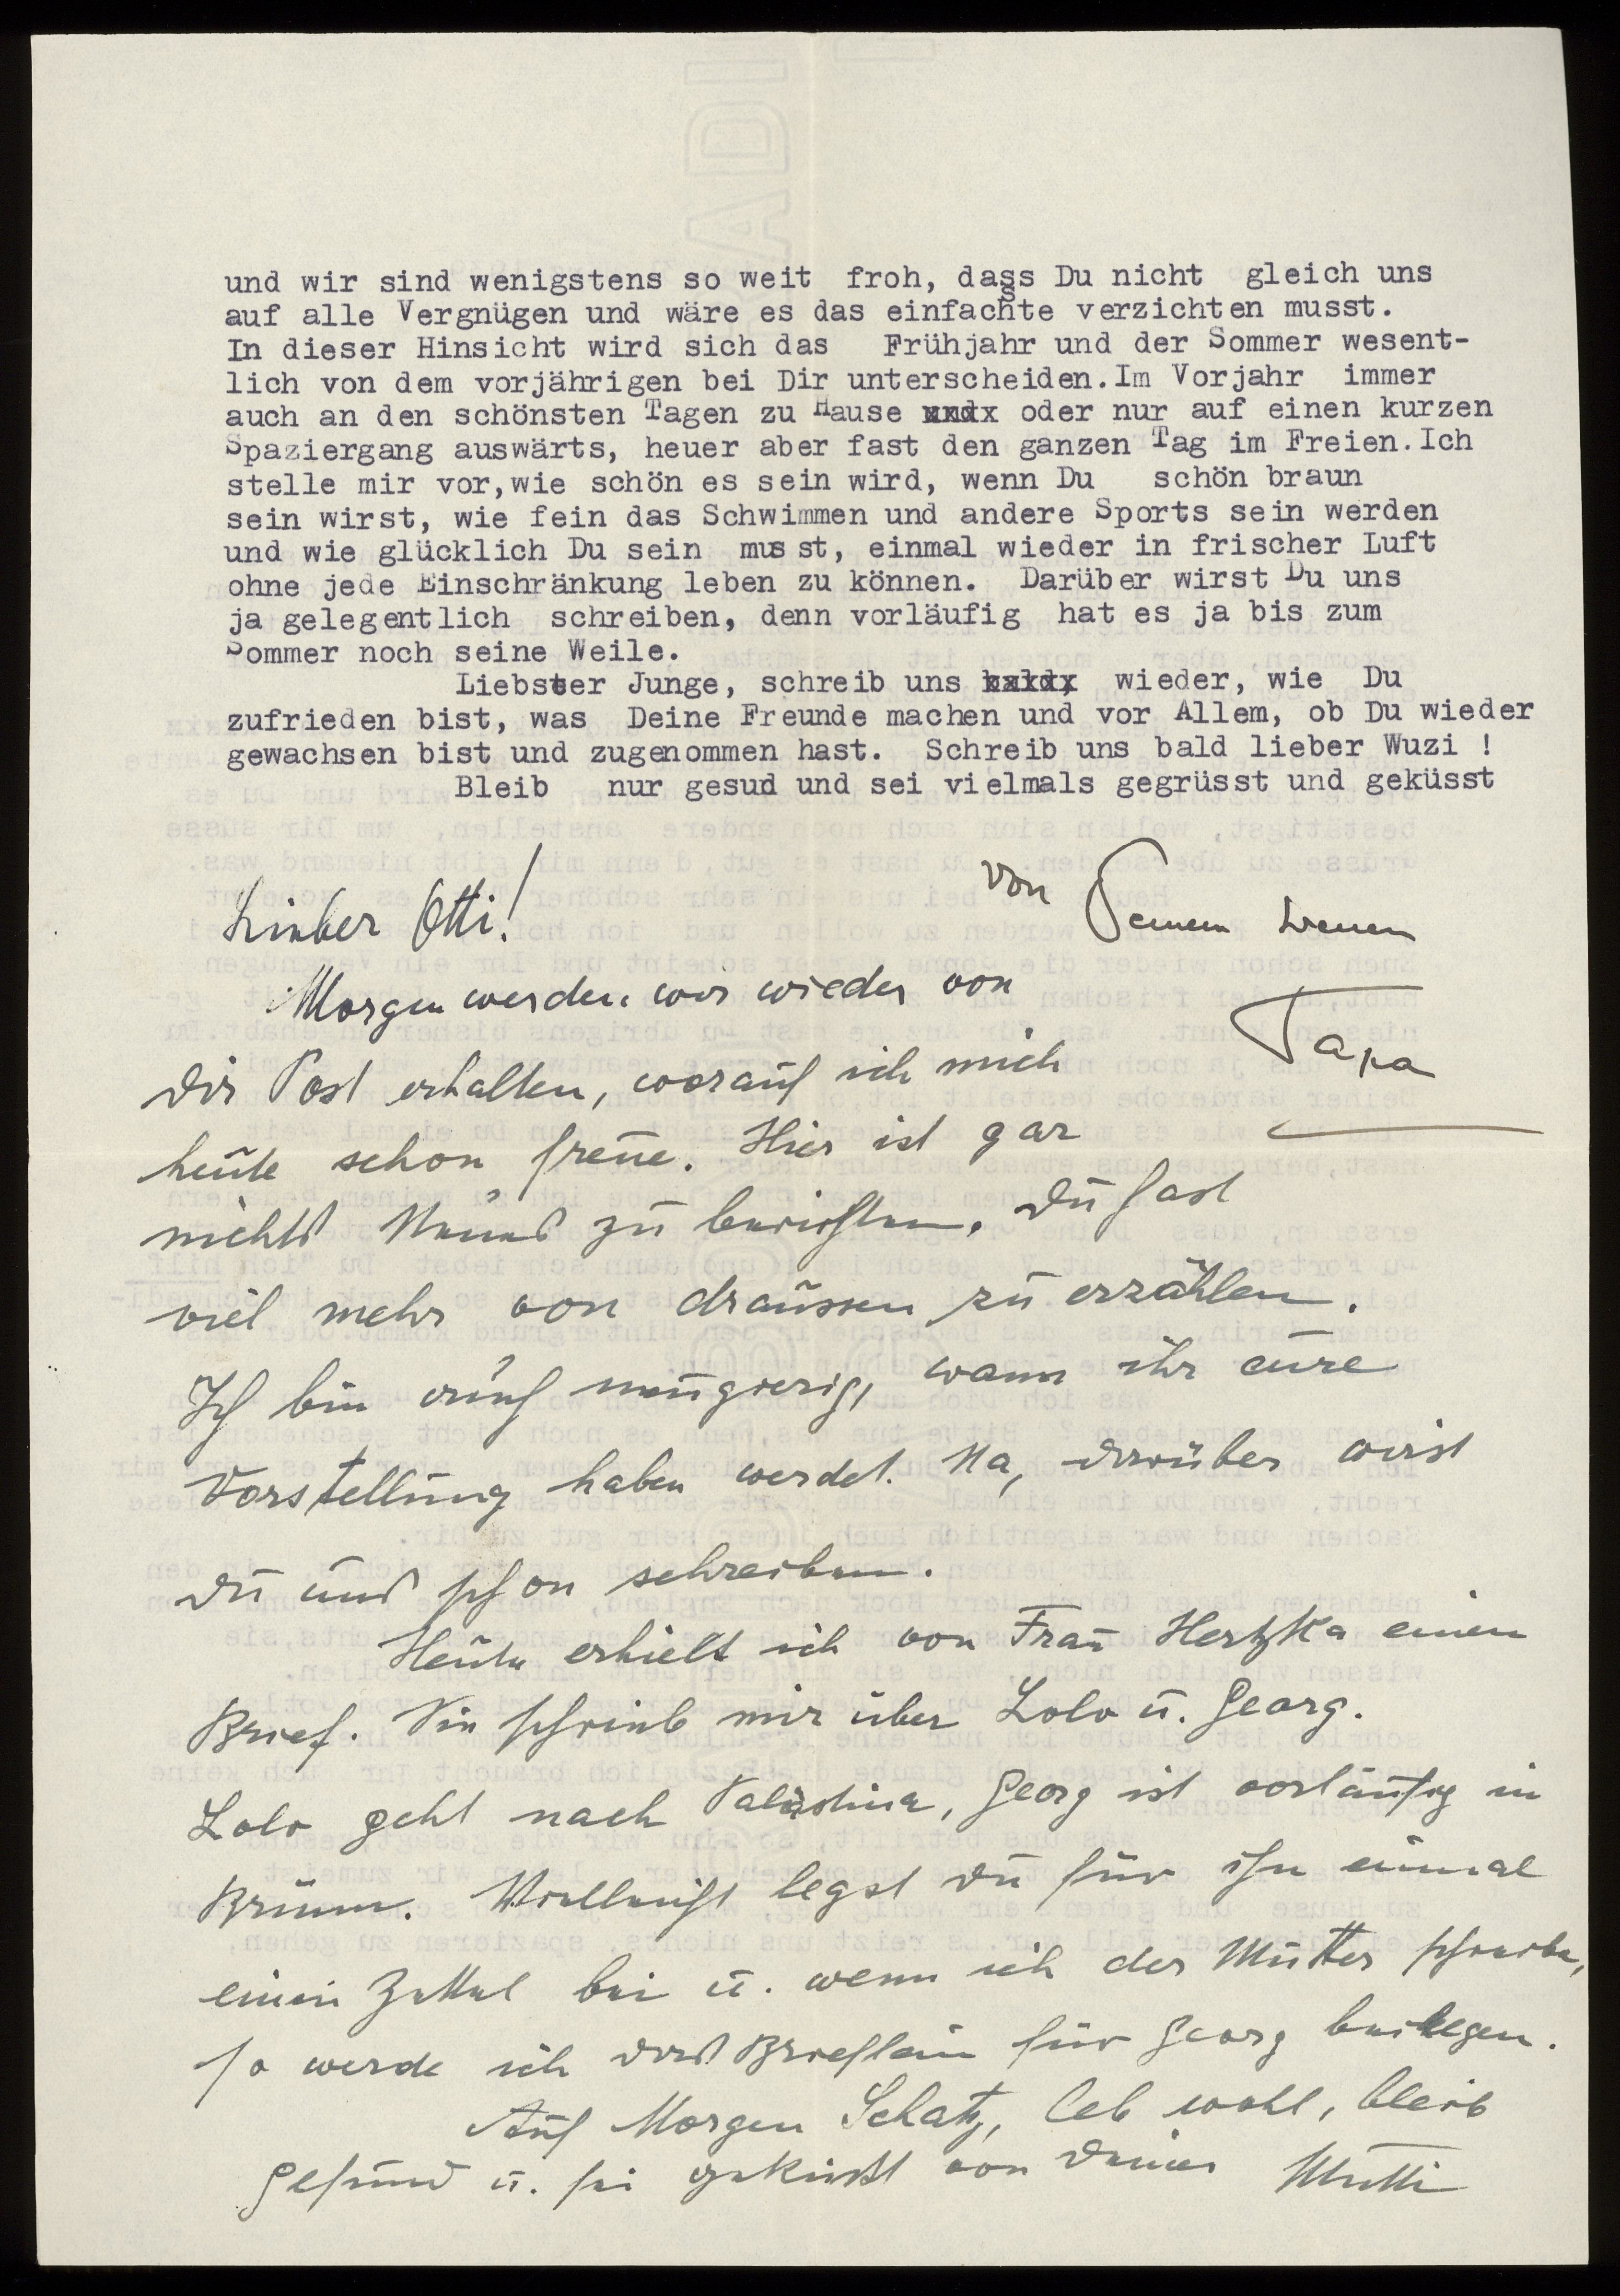 und wir sind wenigstens so weit froh, dass Du nicht gleich uns
auf alle Vergnügen und wäre es das einfachste verzichten musst.
In dieser Hinsicht wird sich das Frühjahr und der Sommer wesent-
lich von dem vorjährigen bei Dir unterscheiden.Im Vorjahr immer
auch an den schönsten Tagen zu Hause xxdx oder nur auf einen kurzen
Spaziergang auswärts, heuer aber fast den ganzen Tag im Freien.Ich
stelle mir vor,wie schön es sein wird, wenn Du schön braun
sein wirst, wie fein das Schwimmen und andere Sports sein werden
und wie glücklich Du sein musst, einmal wieder in frischer Luft
ohne jede Einschränkung leben zu können. Darüber wirst Du uns
ja gelegentlich schreiben, denn vorläufig hat es ja bis zum
Sommer noch seine Weile.
Liebster Junge, schreib uns wieder, wie Du
zufrieden bist, was Deine Freunde machen und vor Allem, ob Du wieder
gewachsen bist und zugenommen hast. Schreib uns bald lieber Wuzi !
Bleib nur gesud und sei vielmals gegrüsst und geküsst
von Deinem treuen
Papa
Lieber Otti!
Morgen werden wir wieder von
Dir Post erhalten, worauf ich mich
heute schon freue. Hier ist gar
nichts Neues zu berichten. Du hast
viel mehr von draussen zu erzählen.
Ich bin auch neugierig, wann ihr eure
Vorstellung haben werdet. Na, darüber wirst
Du uns schon schreiben.
Heute erhielt ich von Frau Hertzka einen
Brief. Sie schrieb mir über Lolo u. Georg.
Lolo geht nach Palästina, Georg ist vorläufig in
Brünn. Vielleicht legst Du für ihn einmal
einen Zettel bei u. wenn ich der Mutter schreibe,
so werde ich das Brieflein für Georg beilegen.
Auf Morgen Schatz, leb wohl, bleib
gesund u. sei geküsst von Deiner Mutti